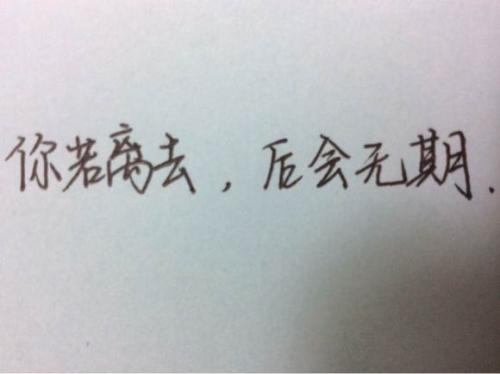 你若离去，后会无期.